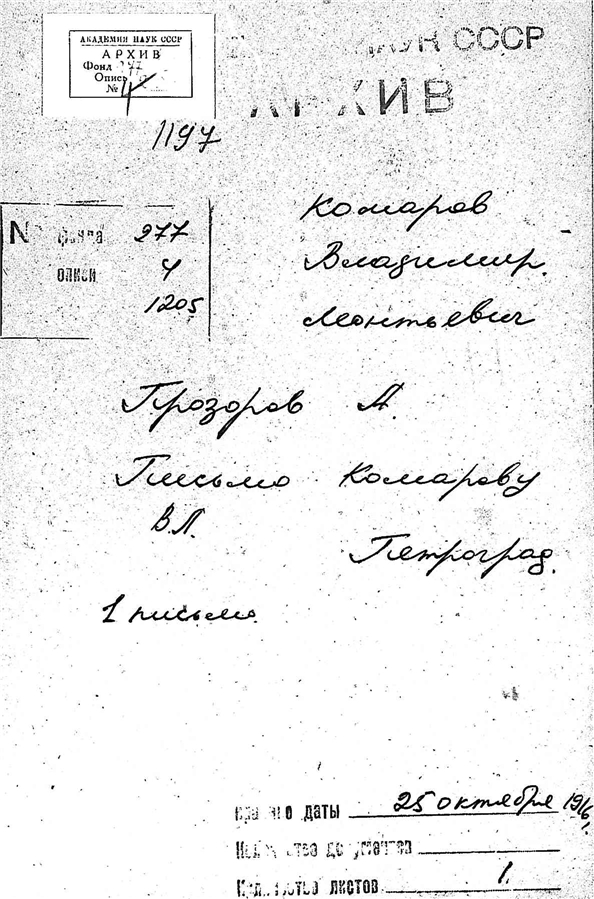 АКАДЕМИЯ НАУК СССР
АРХИВ
Фонд 277
Опись
№ 4
НАУК СССР
АРХИВ
1197
№ фонда 277
описи 4
1205
Комаров
Владимир
Леонтьевич
Прозоров А.
Письмо Комарову
В.Л.
Петроград.
1 письмо
даты 25 октября 1916 г.
Количество документов
Количество листов 1.